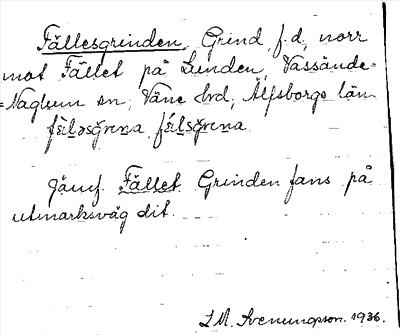 Fällesgrinden. Grind, f.d., norr
mot Fället på Lunden, Vässände-
=Naglum sn, Väne hrd, Älfsborgs län
Jämf. Fället. Grinden fans på
utmarksväg dit.
L.M. Svenungsson. 1936.